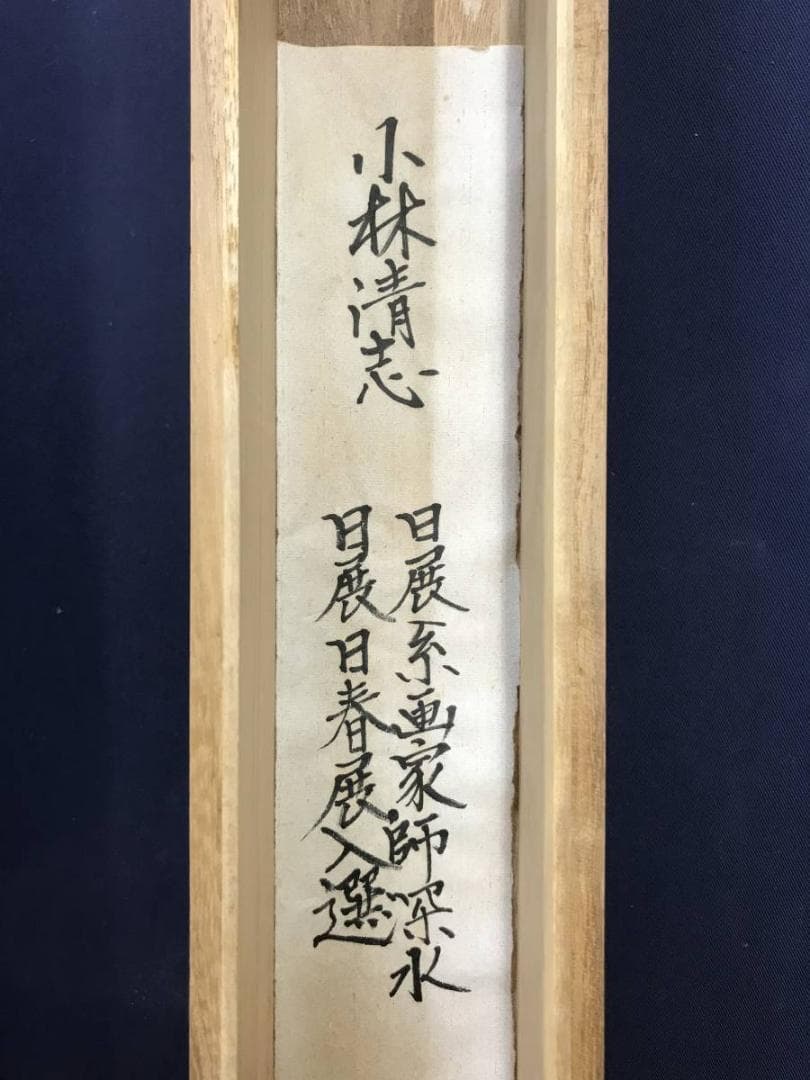 小林清志
日展系画家.師深水
日展日春展入選